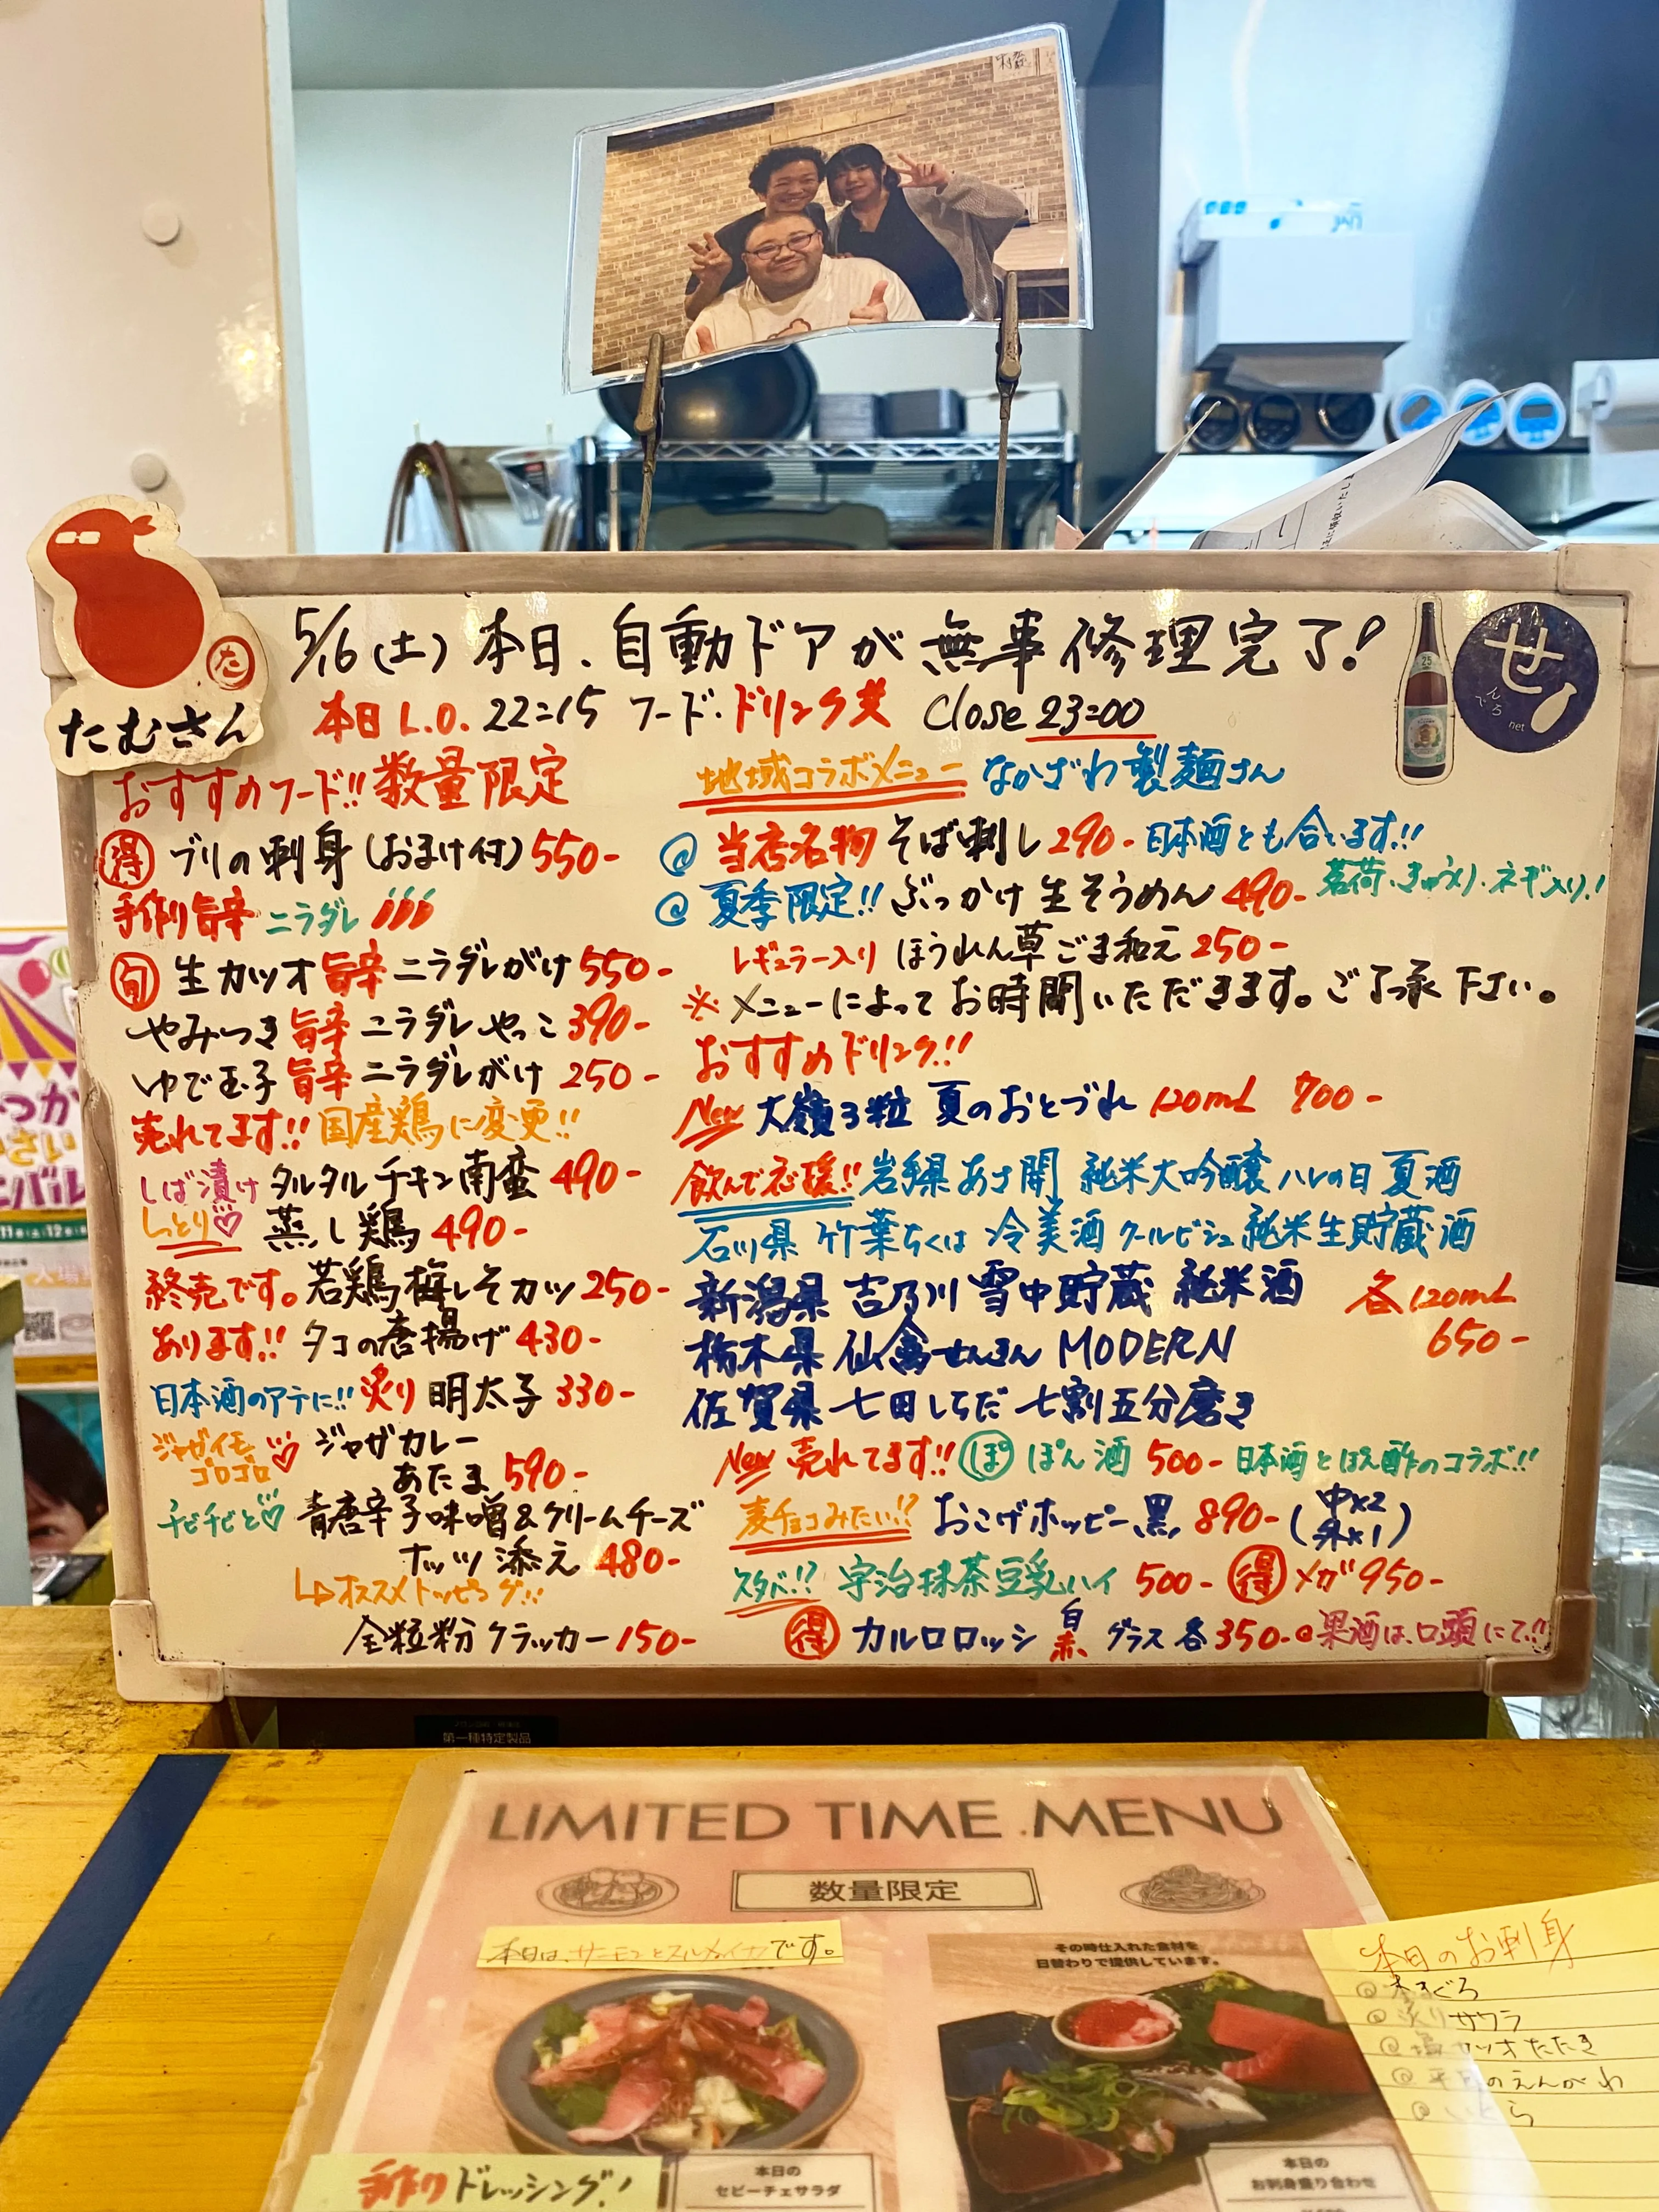 5/16(土) 本日、自動ドアが無事修理完了!
本日 L.O. 22:15 フード・ドリンク共 Close 23:00
た
たむさん
25
せ
んでろ
net
おすすめフード!! 数量限定
得 ブリの刺身(おまけ付) 550-
手作り旨辛 ニラダレ
旬 生カツオ 旨辛 ニラダレがけ 550-
やみつき 旨辛 ニラダレやっこ 390-
ゆで玉子 旨辛 ニラダレがけ 250-
売れてます!! 国産鶏に変更!!
しば漬け タルタルチキン南蛮 490-
しっとり♡ 蒸し鶏 490-
終売です。若鶏梅しそカツ 250-
あります!! タコの唐揚げ 430-
日本酒のアテに!! 炙り 明太子 330-
ジャガイモゴロゴロ♡ ジャガカレー
あたま 590-
チビチビと♡ 青唐辛子味噌&クリームチーズ
ナッツ添え 480-
↳オススメトッピング!!
全粒粉クラッカー 150-
地域コラボメニュー なかざわ製麺さん
@ 当店名物 そば刺し 290- 日本酒とも合います!!
@ 夏季限定!! ぶっかけ生そうめん 490- 茗荷・きゅうり・ネギ入り!
レギュラー入り ほうれん草ごま和え 250-
※メニューによってお時間いただきます。ご了承下さい。
おすすめドリンク!!
New 大嶺3粒 夏のおとづれ 120mL 700-
飲んで応援!! 岩手県 あさ開 純米大吟醸 ハレの日 夏酒
石川県 竹葉ちくは 冷美酒 クールビシュ 純米生貯蔵酒
新潟県 吉乃川 雪中貯蔵 純米酒 各120mL
栃木県 仙禽せんきん MODERN 650-
佐賀県 七田しちだ 七割五分磨き
New 売れてます!! ぽ ぽん酒 500- 日本酒とぽん酢のコラボ!!
麦チョコみたい!? おこげホッピー黒 890- (中×2 外×1)
スタバ!? 宇治抹茶豆乳ハイ 500- 得 メガ950-
得 カルロロッシ 白 赤 グラス各350- @果酒は、口頭にて!!
第一種特定製品
LIMITED TIME MENU
数量限定
本日は、サーモンとスルメイカです。
その時仕入れた食材を
日替わりで提供しています。
本日のお刺身
@本まぐろ
@炙りサワラ
@塩カツオたたき
のえんがわ
手作りドレッシング!
本日の
セビーチェサラダ
本日の
お刺身盛り合わせ